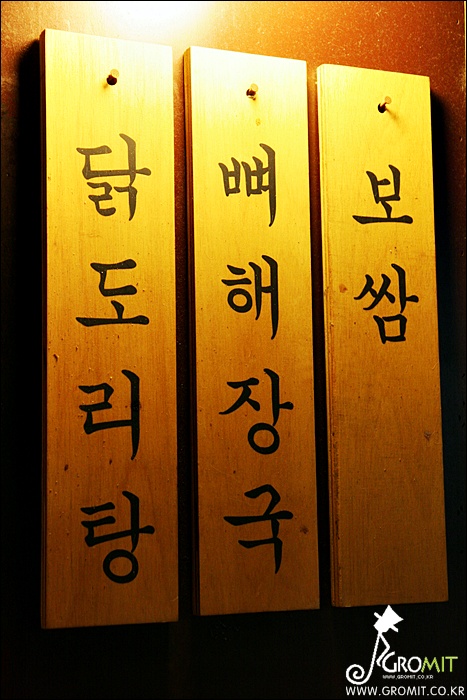 닭도리탕
뼈해장국
보쌈
GROMIT
WWW.GROMIT.CO.KR
WWW.GROMIT.CO.KR